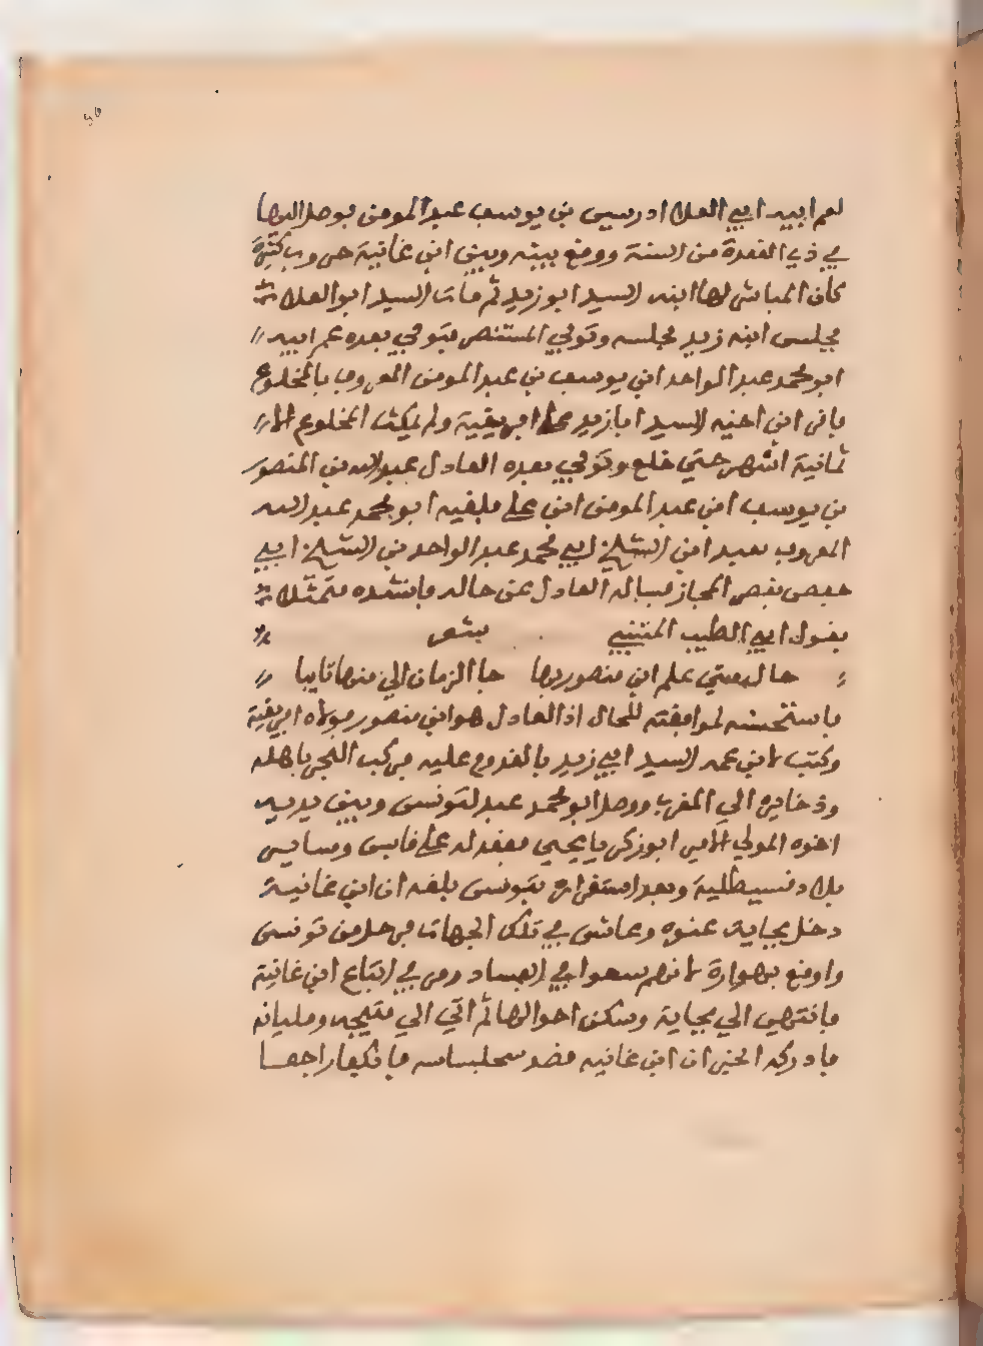 لعم ابيه ابي العلا ادريس بن يوسف عبد المومن فوصل اليها
في ذي القعدة من السنة ووقع بينه وبين ابن غانية حروب كثيرة
كان المباشر لها ابنه السيد ابو زيد ثم مات السيد ابو العلا
فجلس ابنه زيد مجلسه وتوفي المستنصر فتولي بعده عم ابيه
ابو محمد عبد الواحد ابن يوسف بن عبد المومن المعروف بالمخلوع
فاقر ابن اخيه السيد ابا زيد علي افريقية ولم يمكث المخلوع الا
ثمانية اشهر حتي خلع وتولي بعده العادل عبد الله بن المنصور
بن يوسف ابن عبد المومن ابن علي فلقيه ابو محمد عبد الله
المعروف بعبد ابن الشيخ ابي محمد عبد الواحد بن الشيخ ابي
حفص بقصر المجاز فساله العادل عن حاله فانشده متمثلا
بقول ابي الطيب المتنبي بشعر
حال متي علم ابن منصور بها جا الزمان الي منها تايبا
فاستحسنه لموافقته للحال اذ العادل هو ابن منصور فولاه افريقية
وكتب لابن عمه السيد ابي زيد بالقدوم عليه فركب البحر باهله
وذخايره الي المغرب ووصل ابو محمد عبد لتونس وبين يديه
اخوه المولي الامير ابو زكريا يحيي فعقد له علي قابس وساير
بلاد قسيطلية وبعد استقراره بتونس بلغه ان ابن غانية
دخل بجاية عنوه وعاش في تلك الجهات فرحل من تونس
واوقع بهوارة لانهم سعوا في الفساد ومر في اتباع ابن غانية
فانتهي الي بجاية وسكن احوالها ثم اتي الي متيجه ومليانه
فادركه الخبر ان ابن غانيه قصد سجلماسه فانكفا راجعا